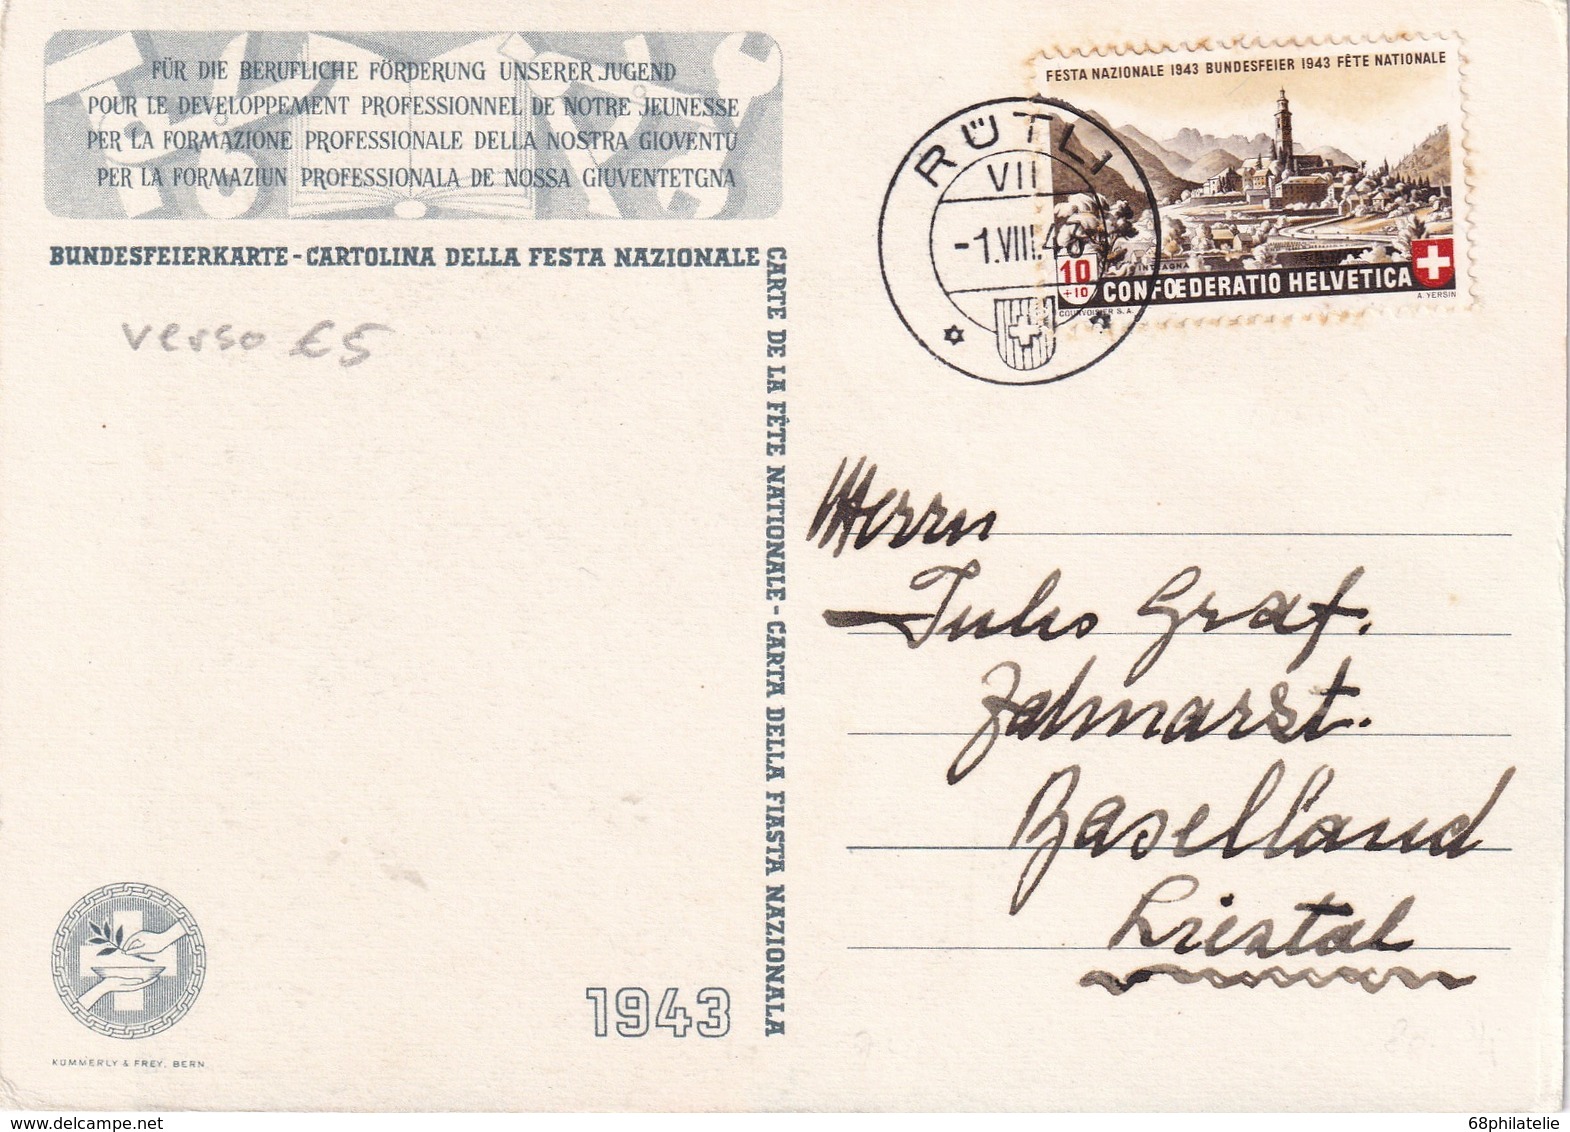 FÜR DIE BERUFLICHE FÖRDERUNG UNSERER JUGEND
POUR LE DEVELOPPEMENT PROFESSIONNEL DE NOTRE JEUNESSE
PER LA FORMAZIONE PROFESSIONALE DELLA NOSTRA GIOVENTÙ
PER LA FORMAZIUN PROFESSIONALA DE NOSSA GIUVENTETGNA
BUNDESFEIERKARTE - CARTOLINA DELLA FESTA NAZIONALE
CARTE DE LA FÊTE NATIONALE - CARTA DELLA FIASTA NAZIONALA
verso €5
1943
KÜMMERLY & FREY, BERN
FESTA NAZIONALE 1943 BUNDESFEIER 1943 FÊTE NATIONALE
INTRAGNA
10
+10
CONFŒDERATIO HELVETICA
COURVOISIER S.A.
A. YERSIN
RÜTLI
VII
-1.VIII.43
Herrn
Jules Graf.
Zahnarzt.
Baselland
Liestal
68philatelie